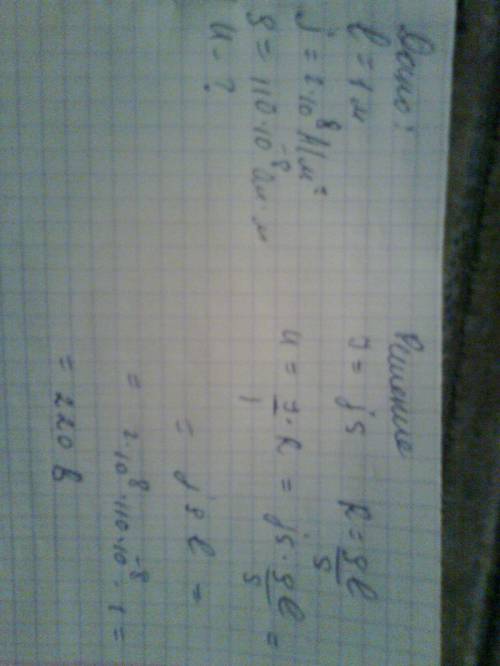 Дано:
l = 1 м
j = 2·10⁸ А/м²
ρ = 110·10⁻⁸ Ом·м
U - ?
Решение
I = jS   R = ρl/S
U = I·R = jS·ρl/S =
= jρl =
= 2·10⁸·110·10⁻⁸·1 =
= 220 В